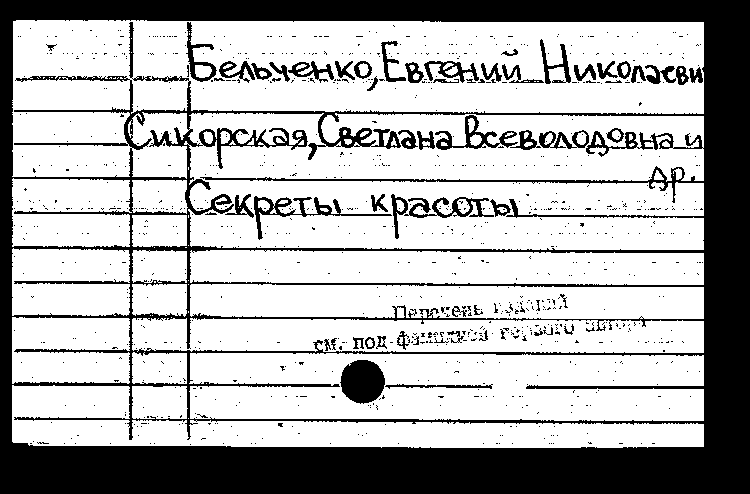 Бельченко, Евгений Николаеви
Сикорская, Светлана Всеволодовна и
др.
Секреты красоты
Перечень изданий
см. под фамилией первого автора